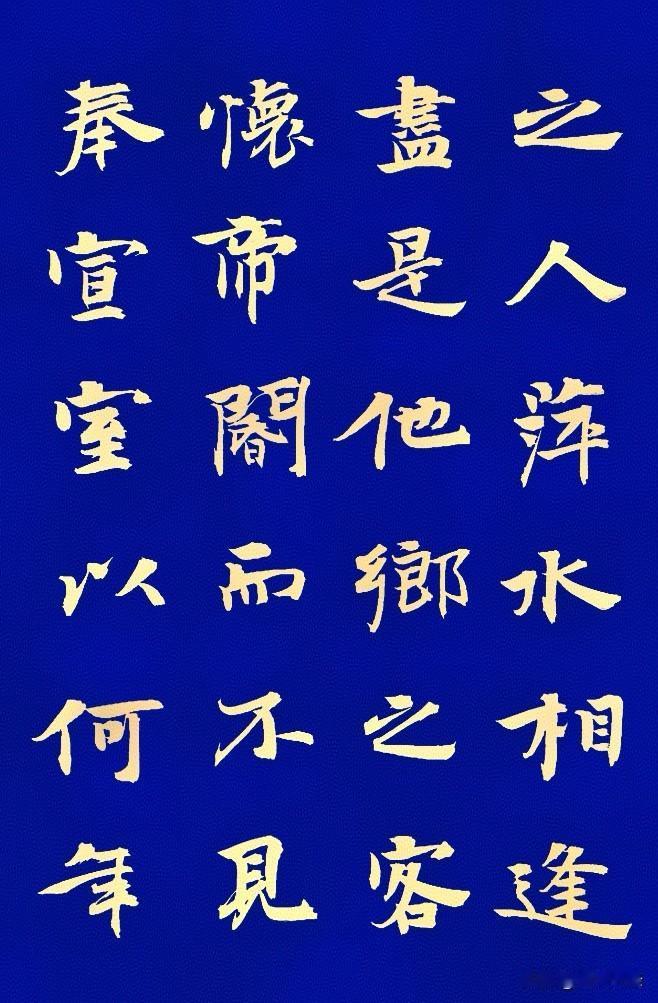 之人萍水相逢
盡是他鄉之客
懷帝閽而不見
奉宣室以何年